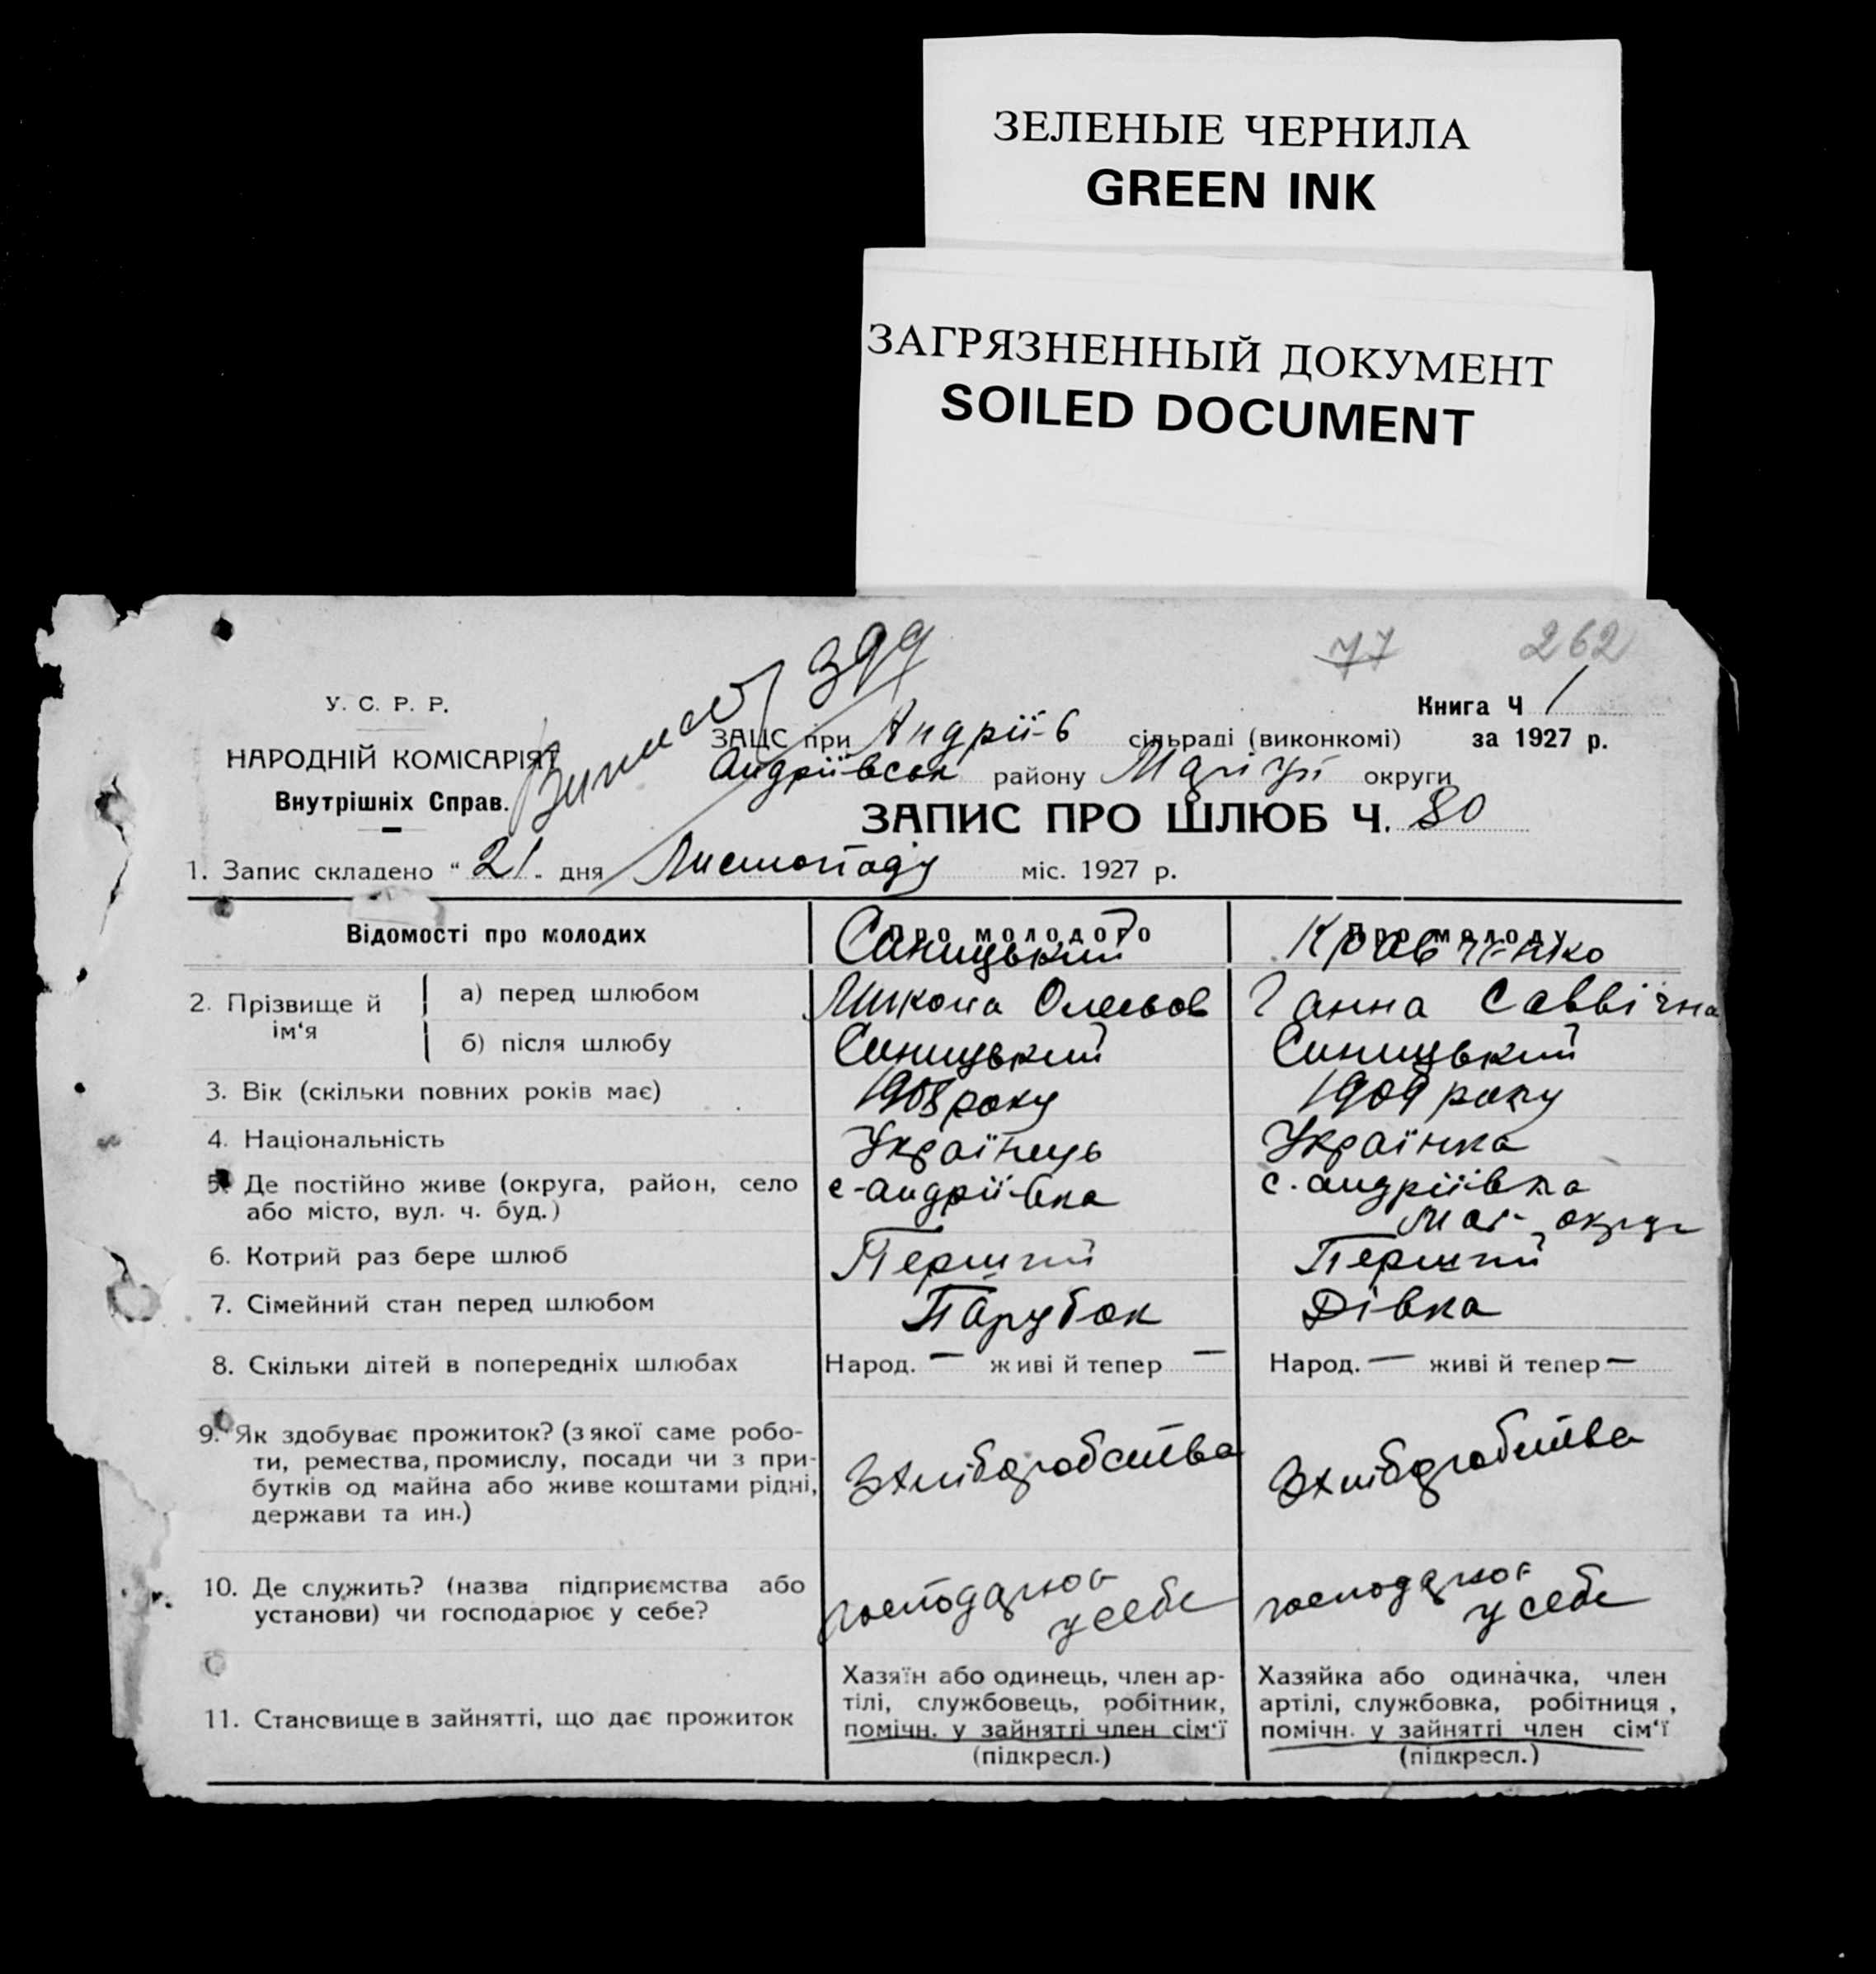 ЗЕЛЕНЫЕ ЧЕРНИЛА
GREEN INK
ЗАГРЯЗНЕННЫЙ ДОКУМЕНТ
SOILED DOCUMENT
77 262
399
У. С. Р. Р.
Книга Ч 1
ЗАЦС при Андрії-в сільраді (виконкомі) за 1927 р.
НАРОДНІЙ КОМІСАРІЯТ
Андріївськ району округи
Внутрішніх Справ.
ЗАПИС ПРО ШЛЮБ Ч. 80
1. Запис складено "21" дня Листопаду міс. 1927 р.
Відомості про молодих Про молодого Про молоду
Синицький Кравченко
2. Прізвище й ім'я а) перед шлюбом Микола Ганна Саввічна
б) після шлюбу Синицький Синицький
3. Вік (скільки повних років має) 1908 року 1909 року
4. Національність Українець Українка
5. Де постійно живе (округа, район, село с-Андріївка с. Андріївка
або місто, вул. ч. буд.) округ
6. Котрий раз бере шлюб Перший Перший
7. Сімейний стан перед шлюбом Парубок Дівка
8. Скільки дітей в попередніх шлюбах Народ. — живі й тепер — Народ. — живі й тепер —
9. Як здобуває прожиток? (з якої саме робо-
ти, ремества, промислу, посади чи з при- З хліборобства З хліборобства
бутків од майна або живе коштами рідні,
держави та ин.)
10. Де служить? (назва підприємства або господарює господарює
установи) чи господарює у себе? у себе у себе
Хазяїн або одинець, член ар- Хазяйка або одиначка, член
тілі, службовець, робітник, артілі, службовка, робітниця,
11. Становище в зайнятті, що дає прожиток помічн. у зайнятті член сім'ї помічн. у зайнятті член сім'ї
(підкресл.) (підкресл.)